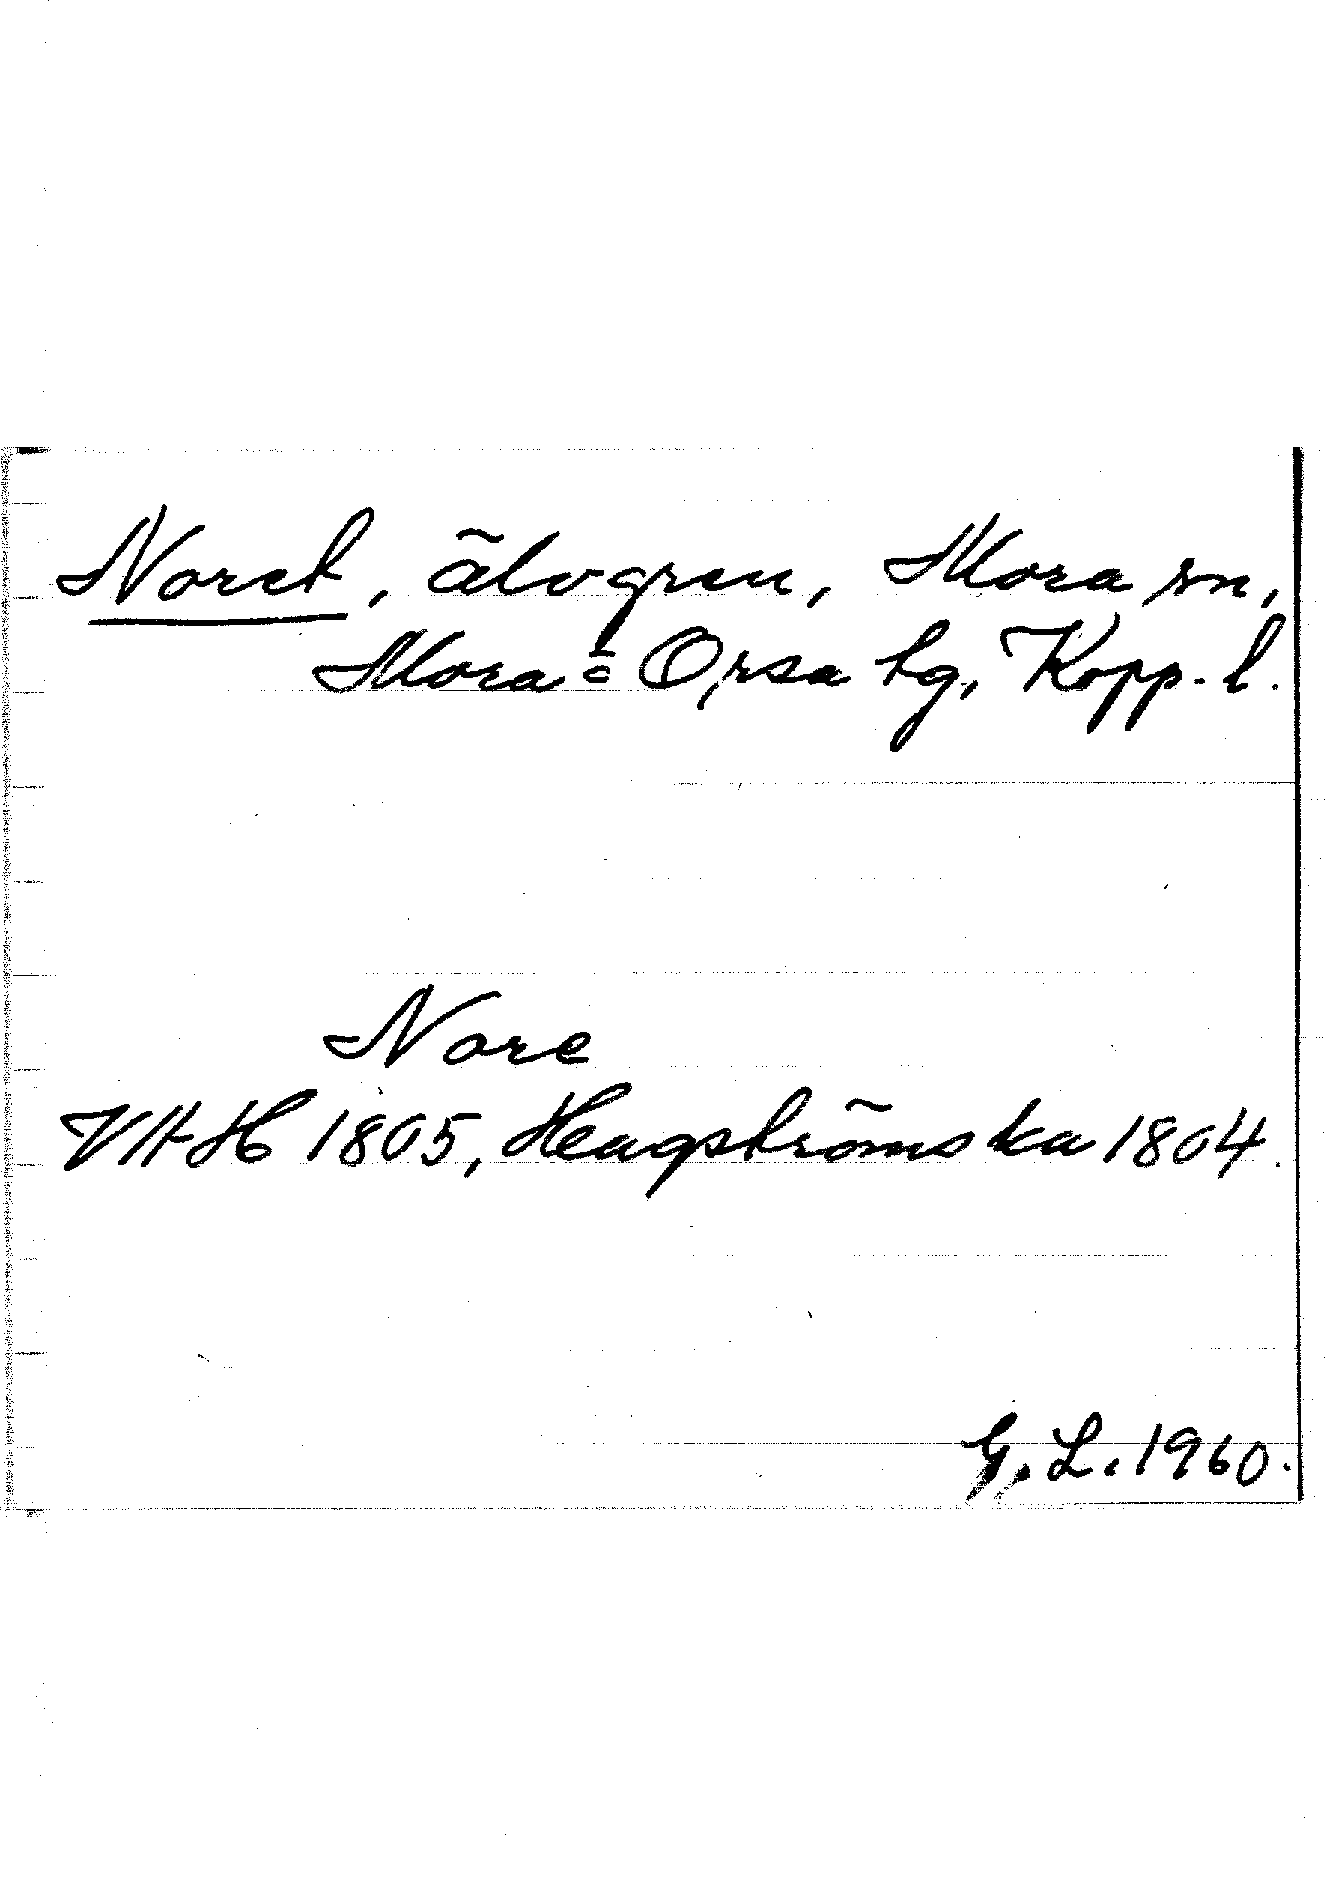 Noret, älvgren, Mora sn,
Mora o Orsa tg, Kopp. l.
Nore
VAH 1805, Hengströms ka 1804.
G. L. 1960.